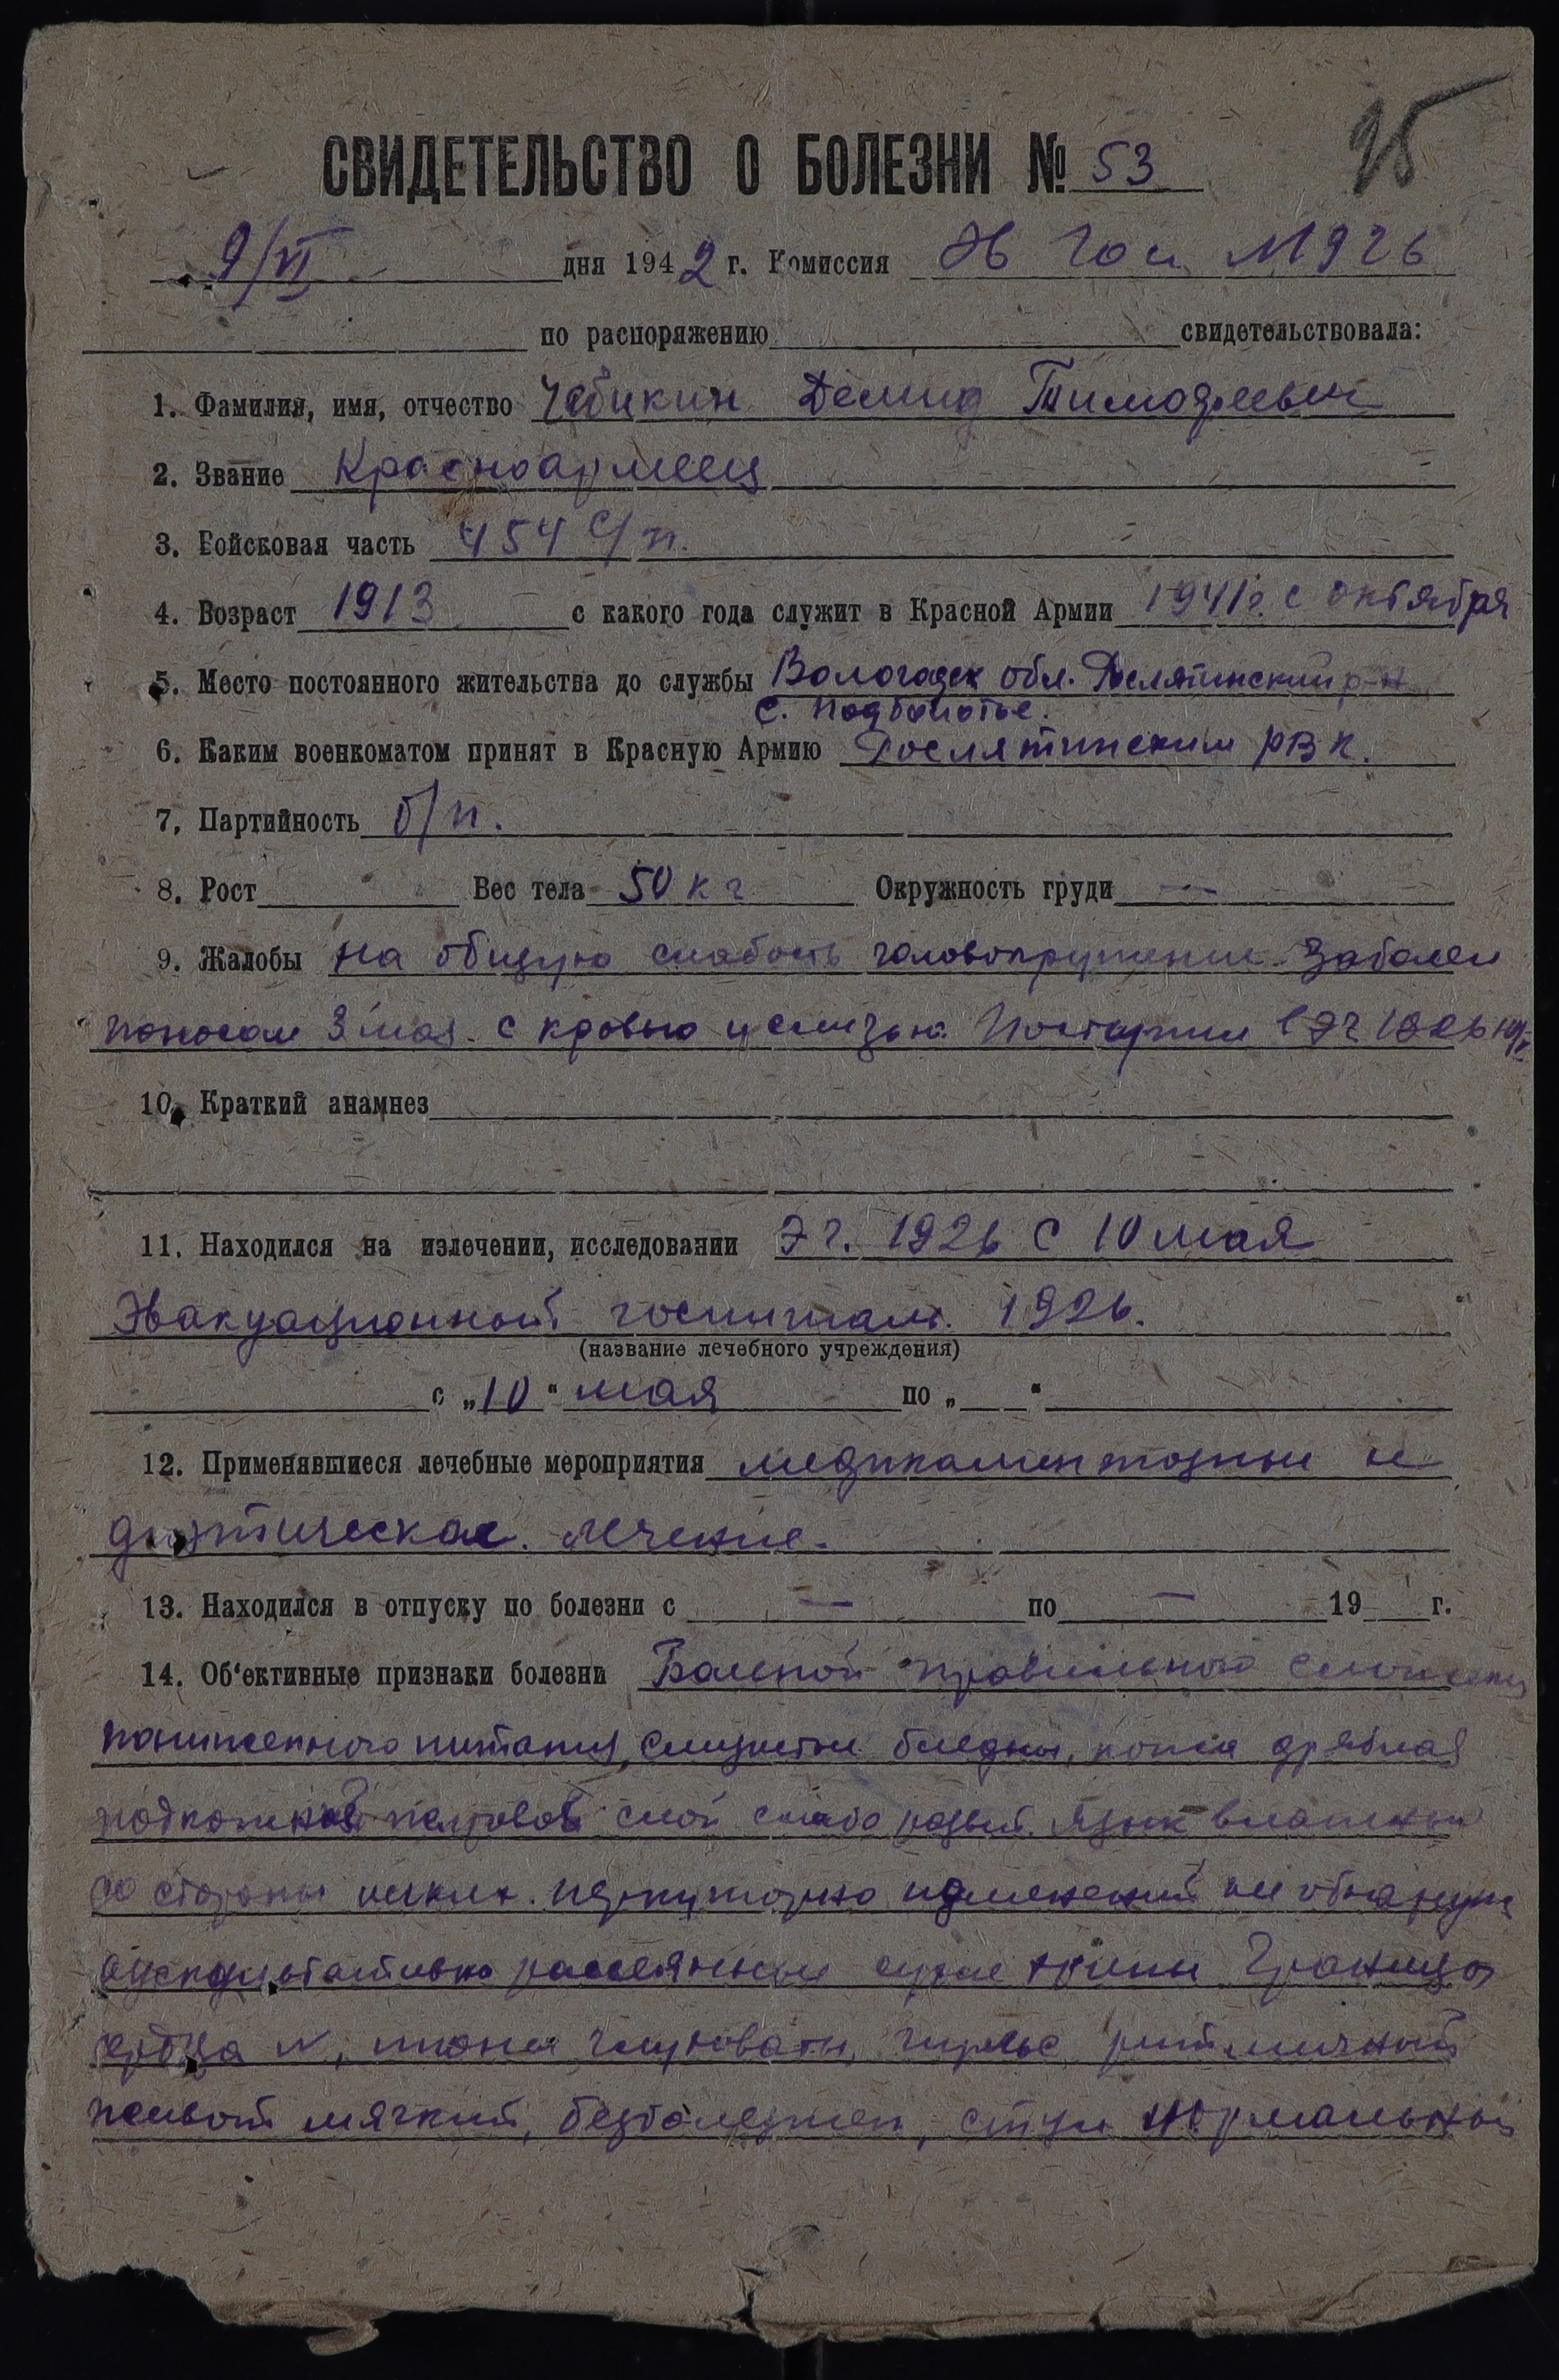 95
СВИДЕТЕЛЬСТВО О БОЛЕЗНИ № 53
9/VI дня 1942 г. Комиссия Эв Гос 1926
по распоряжению свидетельствовала:
1. Фамилия, имя, отчество Чебыкин Демид Тимофеевич
2. Звание Красноармеец
3. Войсковая часть 454 С/п.
4. Возраст 1913 с какого года служит в Красной Армии 1941 г. с октября
5. Место постоянного жительства до службы Вологодск обл. Рослятинский р-н
с. Подболотье.
6. Каким военкоматом принят в Красную Армию Рослятинским РВК.
7. Партийность б/п.
8. Рост Вес тела 50 кг Окружность груди —
9. Жалобы на общую слабость головокружение. Заболел
поносом 3 мая с кровью и слизью. Поступил в ЭГ 1926 10/V
10. Краткий анамнез
11. Находился на излечении, исследовании ЭГ. 1926 с 10 мая
Эвакуационный госпиталь. 1926.
(название лечебного учреждения)
с „10“ мая по „ “
12. Применявшиеся лечебные мероприятия медикаментозные и
диэтическое. лечение.
13. Находился в отпуску по болезни с — по — 19 г.
14. Об‘ективные признаки болезни Больной правильного сложения
пониженного питания, слизистые бледны, кожа дряблая
подкожный жировой слой слабо развит. Язык влажный
со стороны легких. перкуторно изменений не обнаруж
аускультативно рассеянные сухие хрипы Границы
сердца N, тоны глуховаты, пульс ритмичный
живот мягкий, безболезнен, стул нормальный